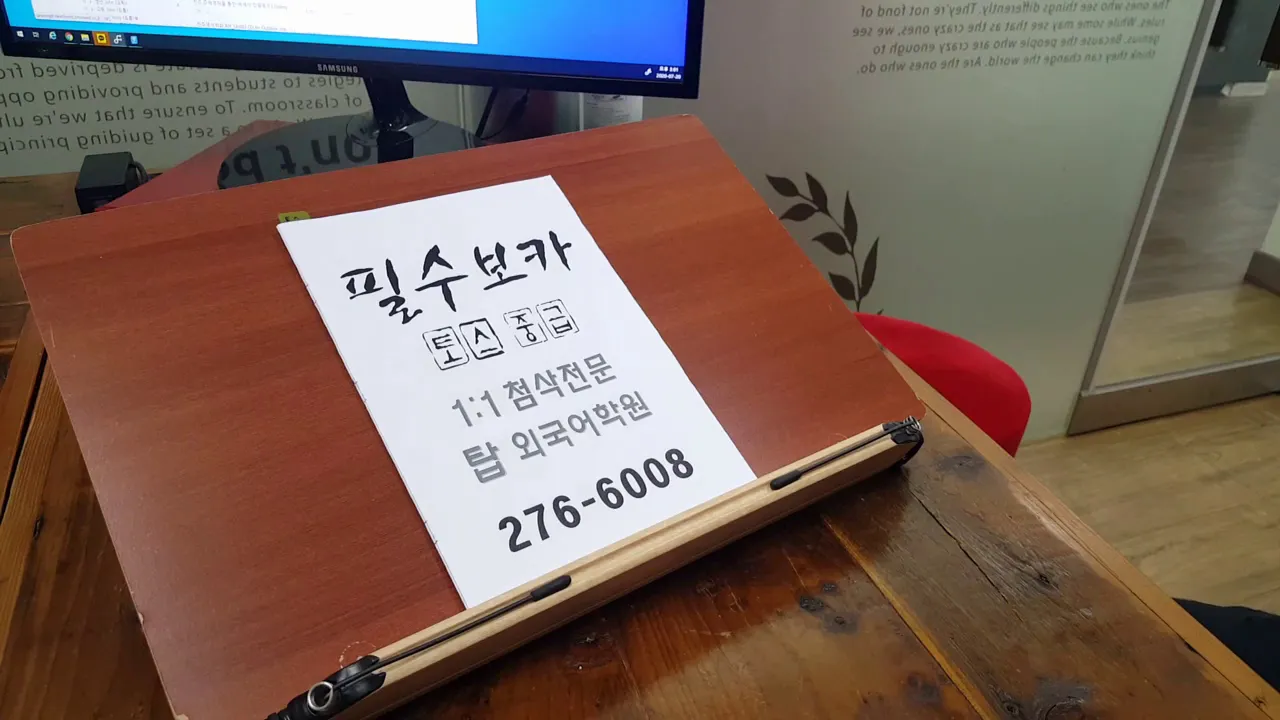 SAMSUNG
2020-07-20
The ones who see things differently. They're not fond of
rules. While some may see that as the crazy ones, we see
genius. Because the people who are crazy enough to
think they can change the world. Are the ones who do.
is deprived
to students and providing
of classroom. To ensure that we're
a set of guiding
필수보카
토스 중급
1:1 첨삭전문
탑 외국어학원
276-6008